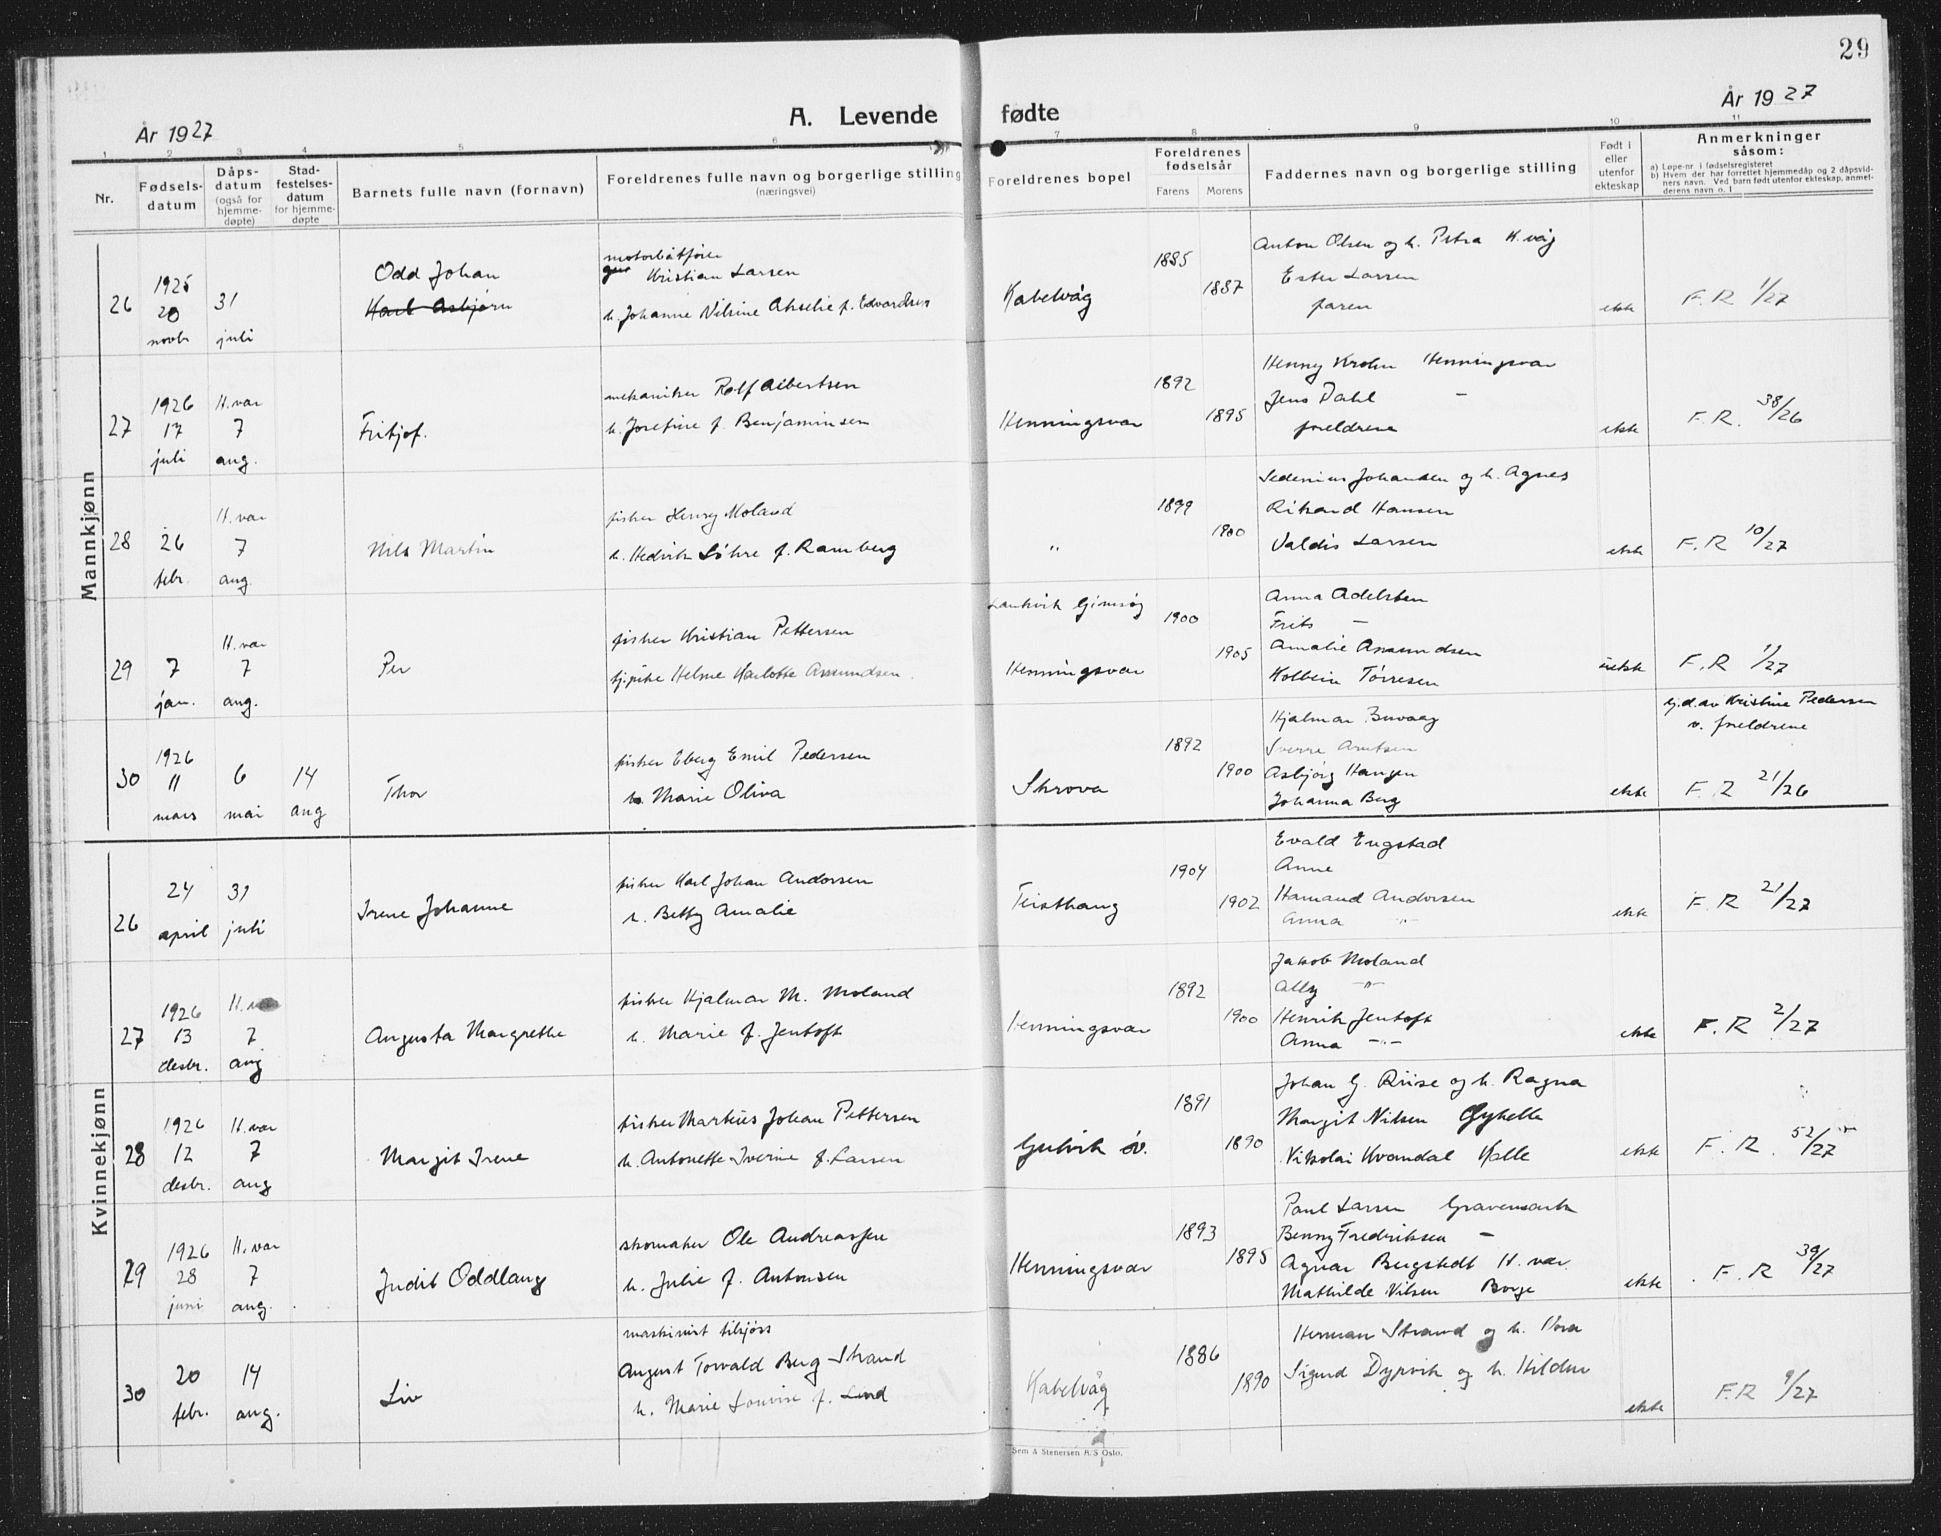 29
År 1927
A. Levende
fødte
År 1927
1 2 3 4 5 6 7 8 9 10 11
Nr.
Fødsels-
datum
Dåps-
datum
(også for
hjemme-
døpte)
Stad-
festelses-
datum
for hjemme-
døpte
Barnets fulle navn (fornavn)
Foreldrenes fulle navn og borgerlige stilling
(næringsvei)
Foreldrenes bopel
Foreldrenes
fødselsår
Farens Morens
Faddernes navn og borgerlige stilling
Født i
eller
utenfor
ekteskap
Anmerkninger
såsom:
a) Løpe-nr. i fødselsregisteret
b) Hvem der har forrettet hjemmedåp og 2 dåpsvid-
ners navn. Ved barn født utenfor ekteskap, anmel-
derens navn o. l
Mannkjønn
26
1925
20
novbr
31
juli
Odd Johan
Karl Asbjørn
motorbåtfører
Kristian Larsen
h. Johanne Nilsine Akselie f. Edvardsen
Kabelvåg
1885
1887
Anton Olsen og h. Petra K.våg
Ester Larsen
faren
ekte
F. R 1/27
27
1926
17
juli
H.vær
7
aug.
Fritjof.
mekaniker Rolf Albertsen
h. Josefine f. Benjaminsen
Henningsvær
1892
1895
Henny Krohn Henningsvær
Jens Dahl —
foreldrene
ekte
F. R. 38/26
28
26
febr.
H. vær
7
aug.
Nils Martin
fisker Henry Moland
h. Hedvik Løkre f. Ramberg
"
1899
1900
Johansen og h. Agnes
Rikard Hansen
Valdis Larsen
ekte
F. R 10/27
29
7
jan.
H. vær
7
aug.
Per
fisker Kristian Pettersen
Helme Karlotte Amundsen.
Laukvik Gimsøy
Henningsvær
1900
1905
Anna Adelsten
Frits —
Amalie Amundsen
Kolbein Tørresen
uekte
F. R 1/27
30
1926
11
mars
6
mai
14
aug
Thor
fisker Eberg Emil Pedersen
h. Marie Oliva
Skrova
1892
1900
Hjalmar Buvaag
Sverre Arntsen
Asbjørg Haugen
Johanna Berg
ekte
hj.d. av Kristine Pedersen
v. foreldrene
F. R 21/26
Kvinnekjønn
26
24
april
31
juli
Irene Johanne
fisker Karl Johan Andorsen
h. Betty Amalie
Teisthaug
1904
1902
Evald Engstad
Anne
Hamand Andorsen
Anna —"—
ekte
F. R 21/27
27
1926
13
desbr.
H. vær
7
aug
Augusta Margrethe
fisker Hjalmar M. Moland
h. Marie f. Jentoft
Henningsvær
1892
1900
Jakob Moland
Ally —"—
Henrik Jentoft
Anna —"—
ekte
F. R 2/27
28
1926
12
desbr.
H. vær
7
aug
Margit Irene
fisker Markus Johan Pettersen
h. Antonette Iverine f. Larsen
Gulvik øv.
1891
1890
Johan G. Riise og h. Ragna
Margit Nilsen
Nikolai Kvandal Kalle
ekte
F. R. 52/27
29
1926
28
juni
H. vær
7
aug.
Judit Oddlaug
skomaker Ole Andreassen
h. Julie f. Antonsen
Henningsvær
1893
1895
Paul Larsen Gravermark
Benny Fredriksen —
Agnar Bergstedt H. vær.
Mathilde Nilsen Borge
ekte
F. R 39/27
30
20
febr.
14
aug.
Liv
maskinist tilsjøs
August Torvald Berg Strand
h. Marie Lovise f. Lund
Kabelvåg
1886
1890
Herman Strand og h. Nora
Sigurd Dyrvik og h. Hildur
ekte
F. R 9/27
Sem & Stenersen A.S Oslo.